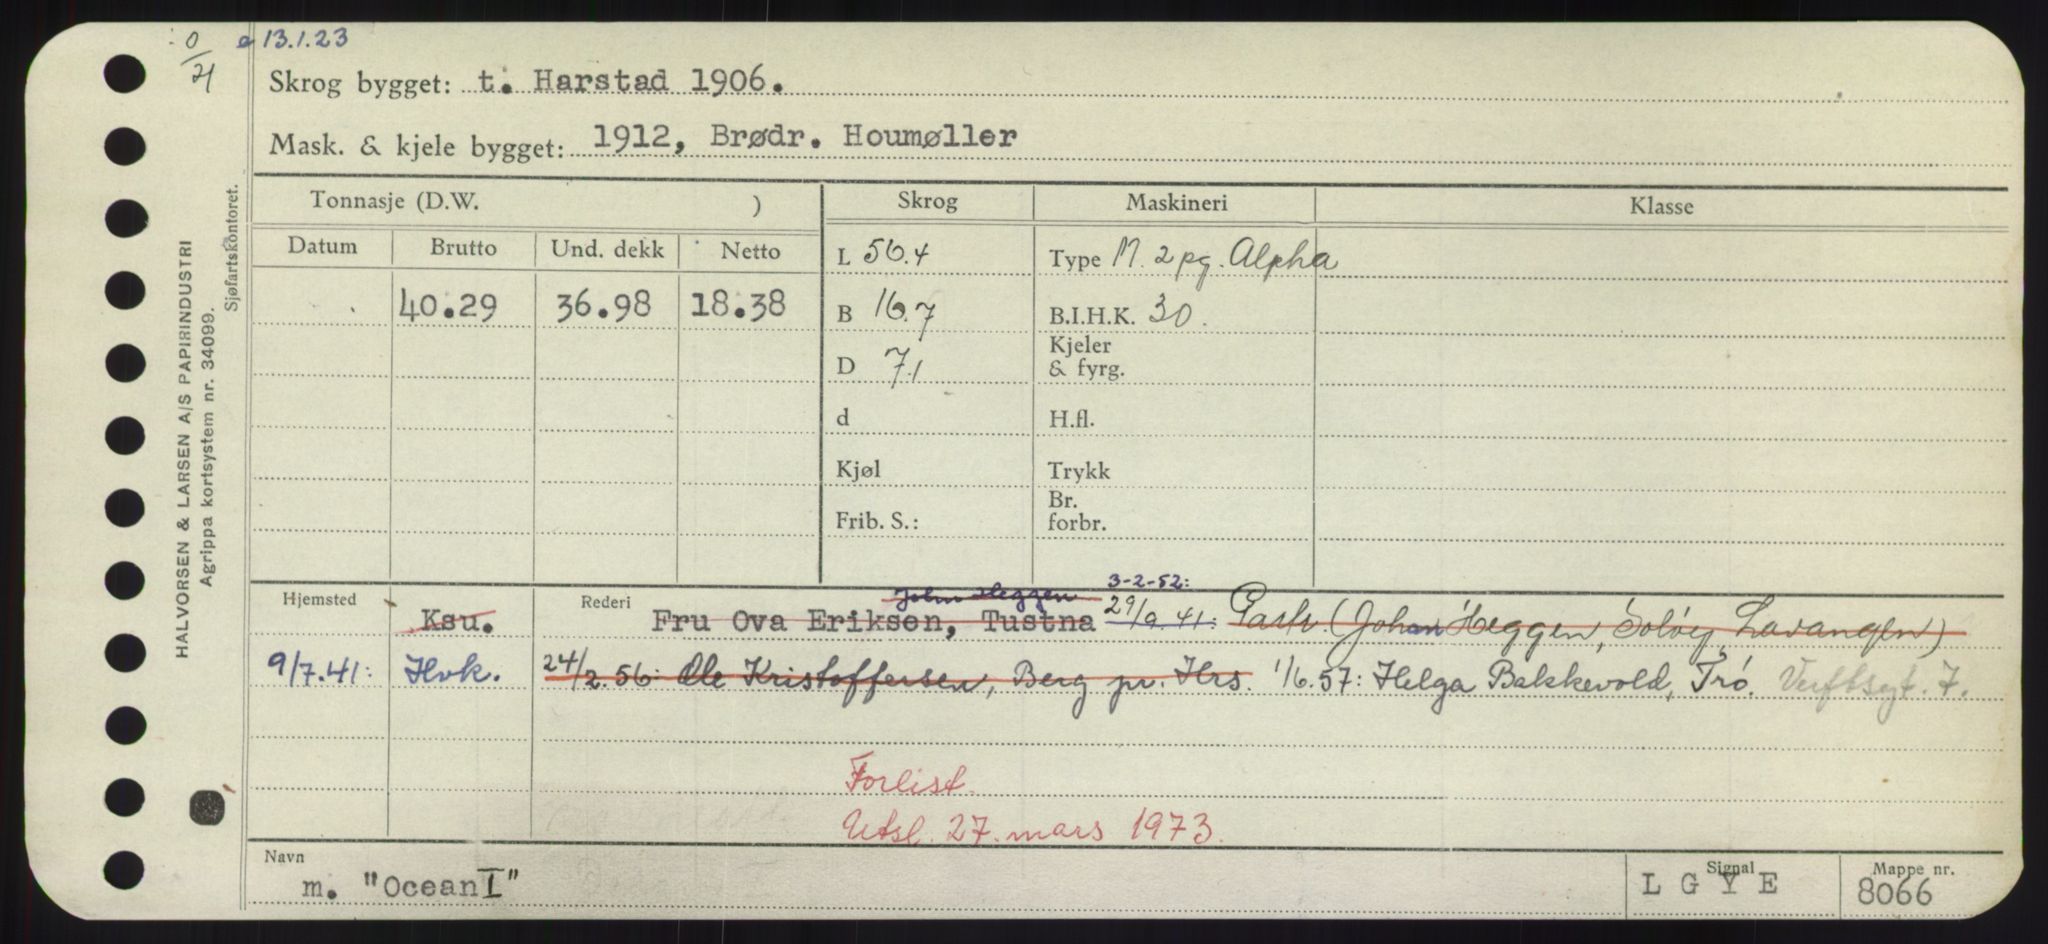 0/21 e 13.1.23
Skrog bygget: t. Harstad 1906.
Mask. & kjele bygget: 1912, Brødr. Houmøller
Tonnasje (D.W. ) Skrog Maskineri Klasse
Datum Brutto Und. dekk Netto L 56.4 Type M. 2 pg. Alpha
40.29 36.98 18.38 B 16.7 B.I.H.K. 30.
D 7.1 Kjeler & fyrg.
d H.fl.
Kjøl Trykk
Frib. S.: Br. forbr.
John Heggen 3-2-52:
Hjemsted Ksu. Rederi Fru Ova Eriksen, Tustna 29/9.41: Partr. (Johan Heggen, Solvey Lavangen)
9/7.41: Hvk. 24/2.56: Ole Kristoffersen, Berg pr. Hrs. 1/6.57: Helga Bakkevold, Trø. 7.
Forlist.
Utsl. 27. mars 1973.
Navn m. "Ocean I" Signal L G Y E Mappe nr. 8066
HALVORSEN & LARSEN A/S PAPIRINDUSTRI
Agrippa kortsystem nr. 34099.
Sjøfartskontoret.